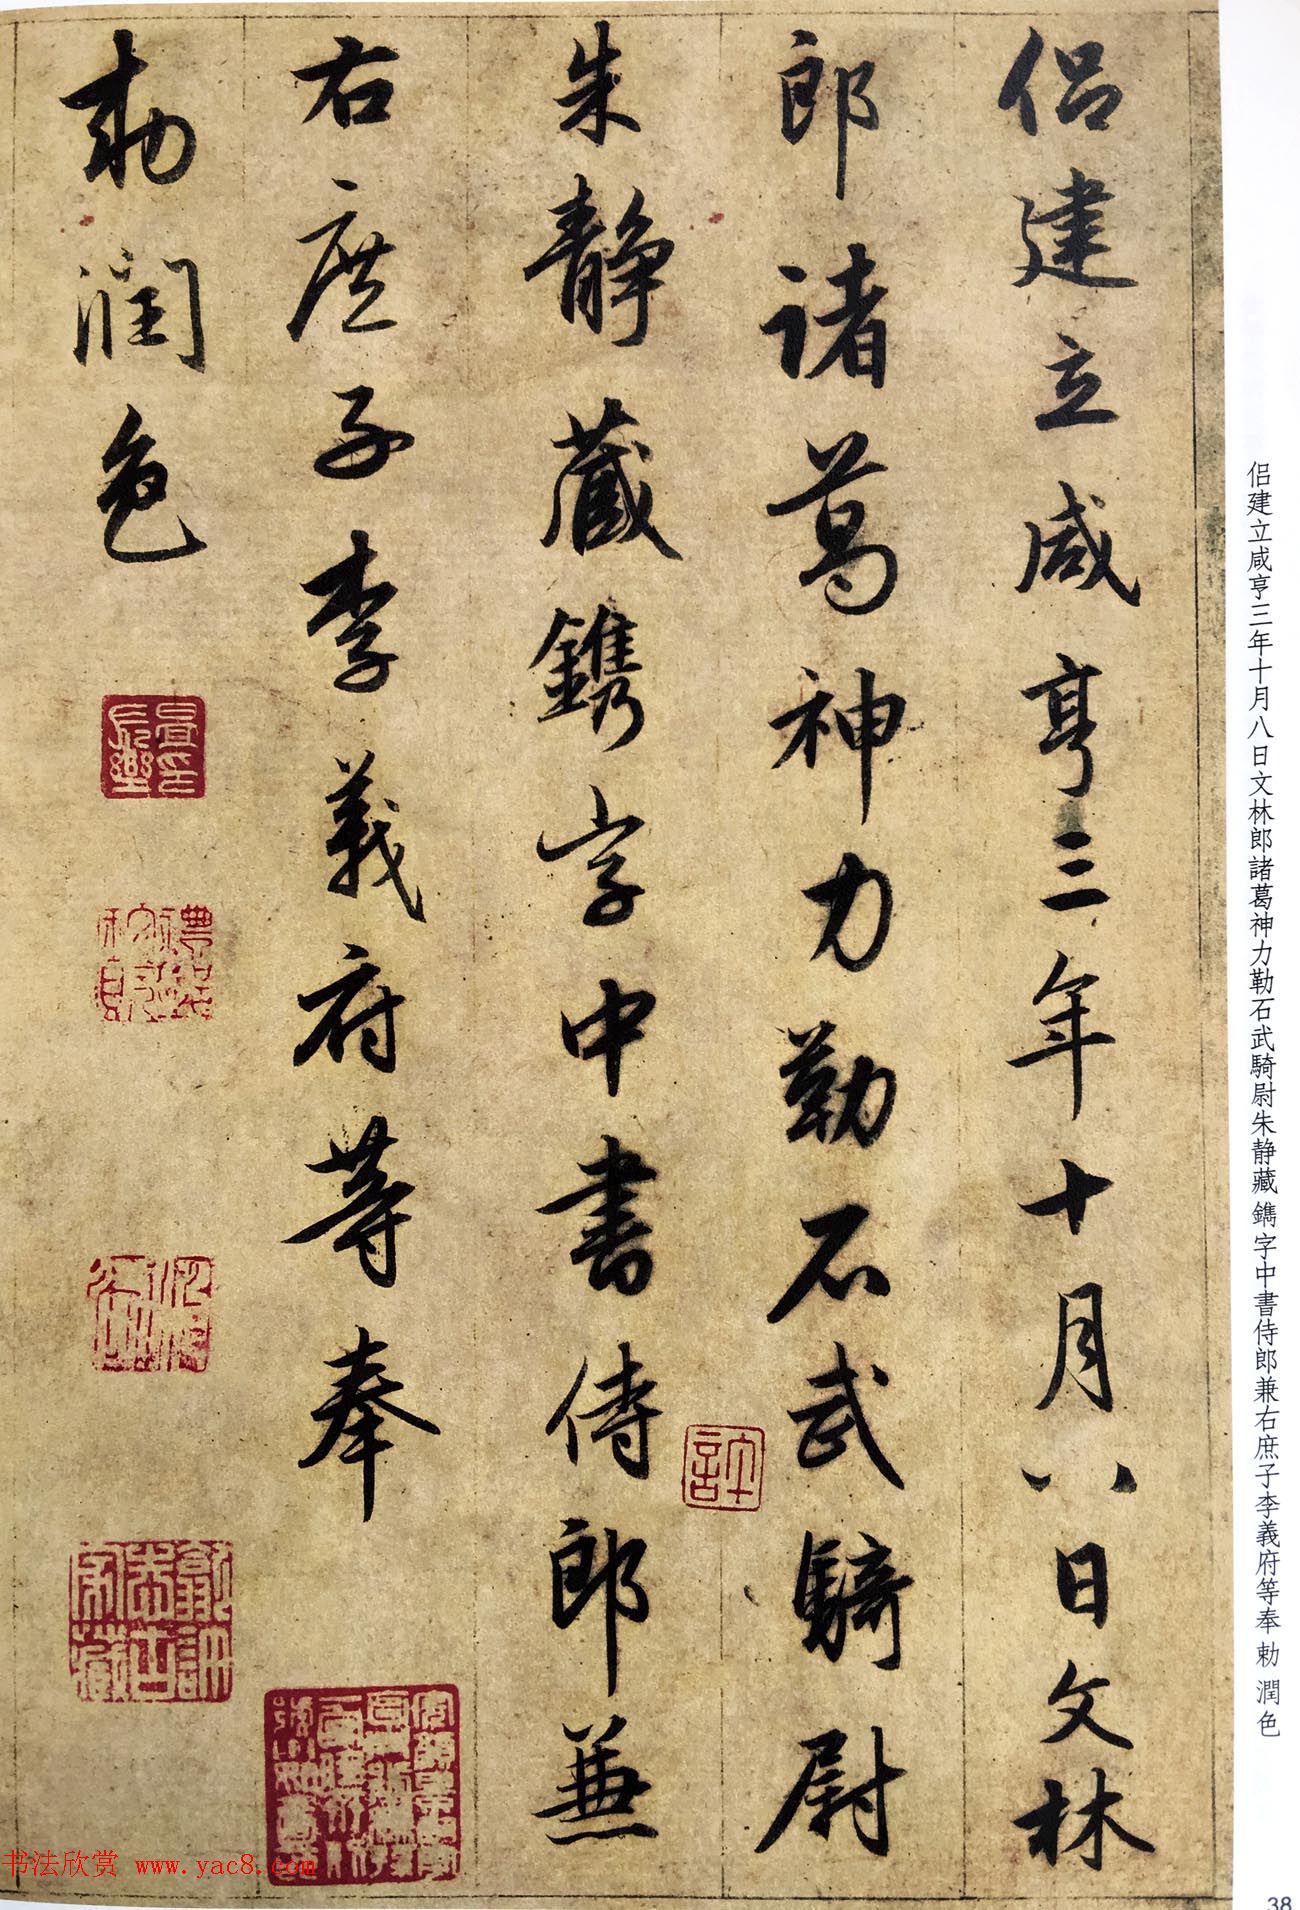 侣建立咸亨三年十月八日文林
郎諸葛神力勒石武騎尉
朱靜藏鐫字中書侍郎兼
右庶子李義府等奉
勅潤色
侣建立咸亨三年十月八日文林郎諸葛神力勒石武騎尉朱静藏鐫字中書侍郎兼右庶子李義府等奉勅潤色
38
书法欣赏 www.yac8.com